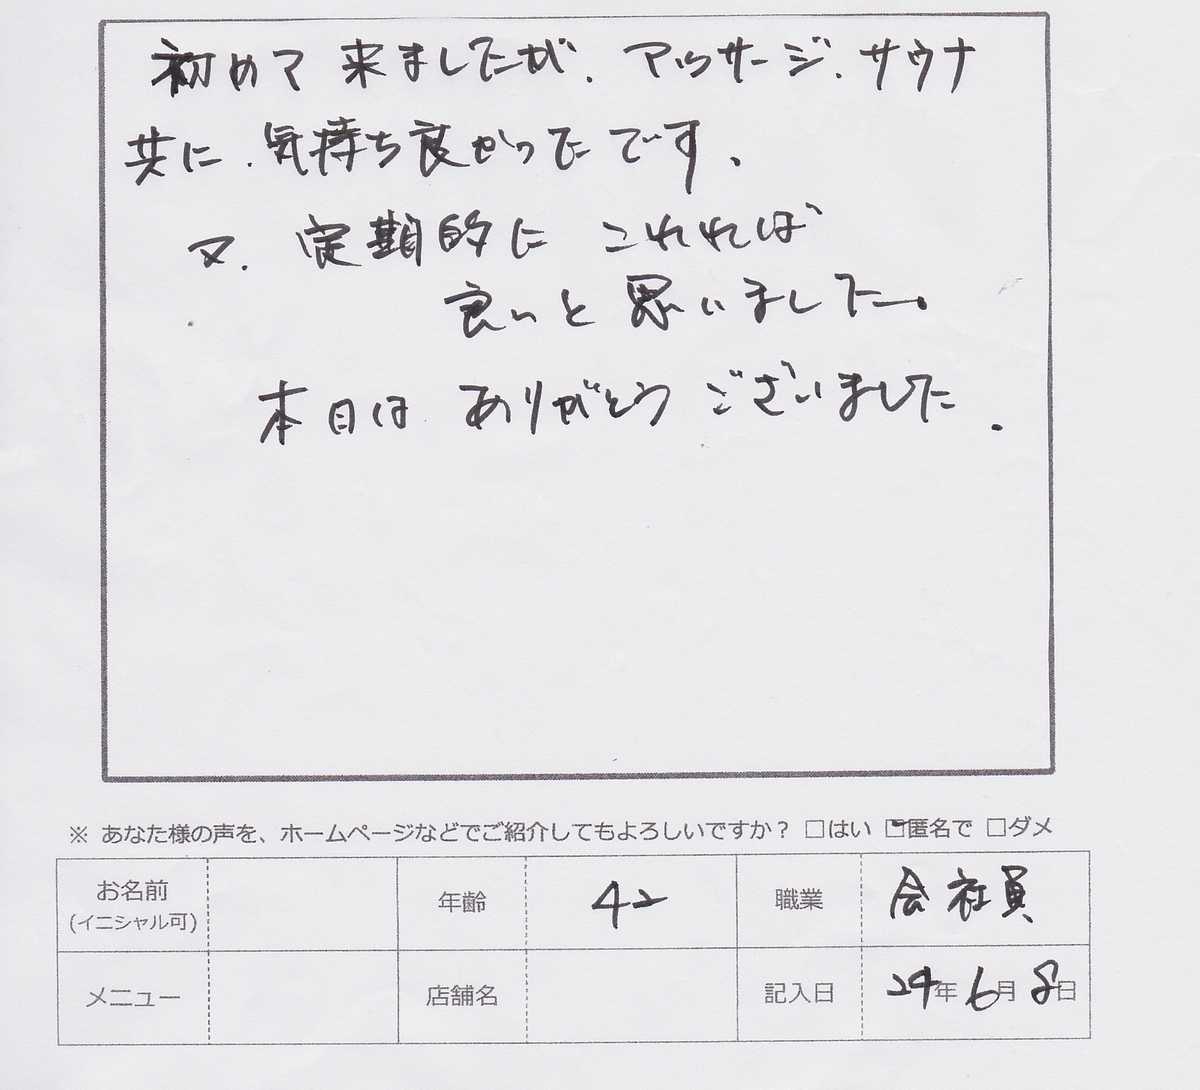 初めて来ましたが、マッサージ、サウナ
共に、気持ち良かったです。
又、定期的にこれれば
良いと思いました。
本日はありがとうございました。
※ あなた様の声を、ホームページなどでご紹介してもよろしいですか？ □はい ☑匿名で □ダメ
お名前 (イニシャル可) 年齢 42 職業 会社員
メニュー 店舗名 記入日 24年6月8日